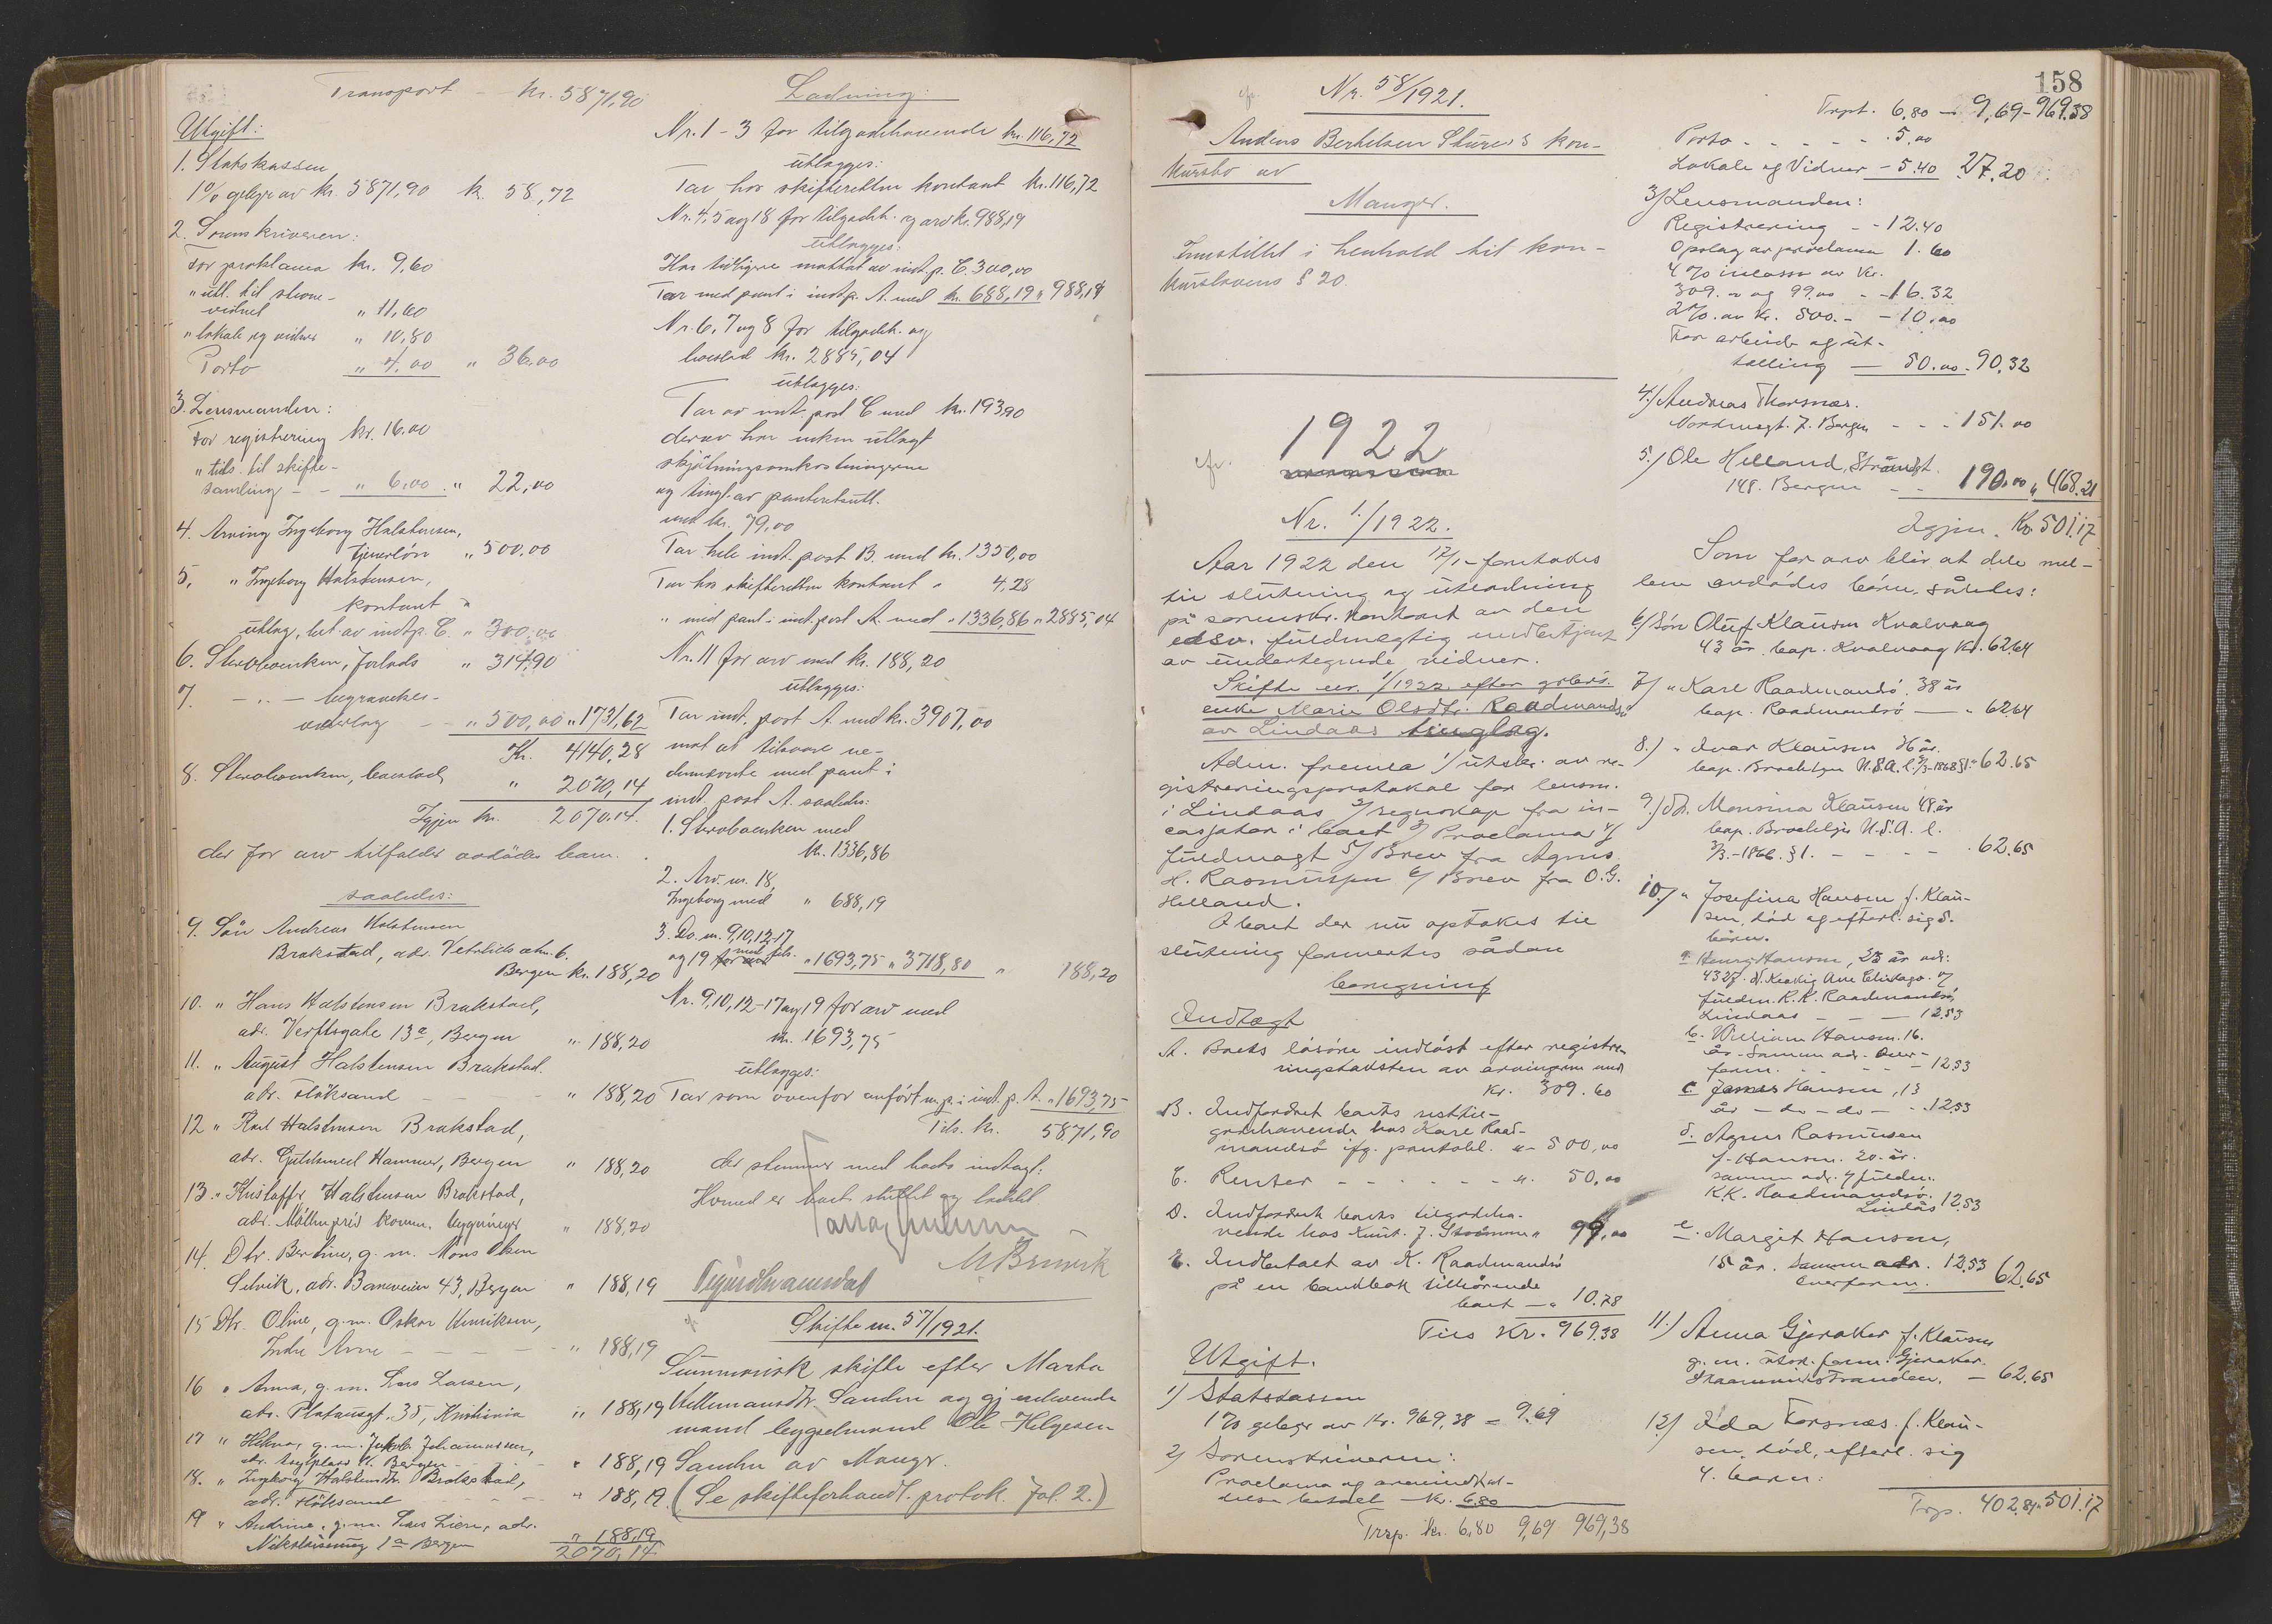 Transport - kr. 5871,90
Utgift:
1. Statskassen
1% gebyr av kr. 5871,90 kr. 58,72
2. Sorenskriveren:
For proklama kr. 9,60
" utl. til stevne-
vidnet " 11,60
" lokale og vidner " 10,80
Porto " 4,00 " 36,00
3. Lensmanden:
For registrering kr. 16,00
" tils. til skifte-
samling - - " 6,00 " 22,00
4. Arving Ingeborg Halstensen,
tjenerlön " 500,00
5. " Ingeborg Halstensen,
kontant
utlag, bet. av indt.p. C. " 300,00
6. Sterboenken, forlods " 314,90
7. - " - begravelses-
" 500,00 " 1731,62
Kr. 4140,28
8. Sterboenken, boeslod " 2070,14
Igjen kr. 2070,14.
der for arv tilfalder avdödes barn.
saaledes:
9. Sön Andreas Halstensen
Brakstad, adr. Vetrlids alm. 6.
Bergen kr. 188,20
10. " Hans Halstensen Brakstad,
adr. Verftsgate 13a, Bergen " 188,20
11. " August Halstensen Brakstad.
adr. Flöksand " 188,20
12 " Karl Halstensen Brakstad,
adr. Guldsmed Hammer, Bergen " 188,20
13. " Kristoffer Halstensen Brakstad,
adr. Möllenpris komm. bygninger " 188,20
14. Dtr. Bertine, g. m. Mons Olsen
Selvik, adr. Baneveien 43, Bergen " 188,19
15 Dtr. Oline, g. m. Oskar Henriksen,
Indre Arne - - - - " 188,19
16 " Anna, g. m. Lars Larsen,
adr. Platousgt. 35, Kristiania " 188,19
17 " Helena, g. m. Jakob Johannessen,
adr. Asylplass K. Bergen - " 188,19
18. " Ingeborg Halstensdtr. Brakstad,
adr. Flöksand " 188,19.
19 " Andrine, g. m. Lars Lien, adr.
Nikolaismug 1a Bergen " 188,19
2070,14
Ladning:
Nr. 1 - 3 for tilgodehavende kr. 116,72
utlægges:
Tar hos skifteretten kontant kr. 116,72
Nr. 4, 5 og 18 for tilgodeh. og arv kr. 988,19
utlægges:
Har tidligere mottat av indt.p. C. 300,00
Tar med pant i indtp. A. med kr. 688,19 " 988,19
Nr. 6, 7 og 8 for tilgodeh. og
boeslod kr. 2885,04
utlægges:
Tar av indt. post C med kr. 193,90
derav har enken utlagt
skjötningsomkostningerne
og tingl. av panteretsutl.
med kr. 79,00
Tar hele indt. post B. med kr. 1350,00
Tar hos skifteretten kontant " 4,28
" med pant i indt. post A. med " 1336,86 " 2885,04
Nr. 11 for arv med kr. 188,20
utlægges:
Tar indt. post A. med kr. 3907,00
mot at tilsvare ne-
dennævnte med pant i
indt. post A. saaledes:
1. Sterboenken med
kr. 1336,86
2. Arv. nr. 18,
Ingeborg med " 688,19
3. Do. nr. 9, 10, 12-17
og 19 for arv med tils. " 1693,75 " 3718,80 " 188,20
Nr. 9, 10, 12-17 og 19 for arv med
kr. 1693,75
utlægges:
Tar som ovenfor anfört m. p. i indt. p. A. " 1693,75
Tils. kr. 5871,90
der stemmer med boets indtægt.
Hermed er boet sluttet og ladet
Skifte nr. 57/1921.
Summarisk skifte efter Marta
Hellemansdtr. Sandnu og gj. enlevende
mand bygselmand Ole Helgesen
Sandnu av Manger.
(Se skifteforhandl. protok. Fol. 2.)
158
Nr. 58/1921.
Anders Bertelsen Stures kon-
kursbo av
Manger.
Innstillet i henhold til kon-
kurslovens § 20.
1922
Nr. 1/1922.
Aar 1922 den 17/1 - foretokes
til slutning og utlodning
på sorenskr. kontoret av den
edsv. fuldmegtig
av undertegnede vidner.
Skifte nr. 1/1922 efter gbrs.
enke Marie Olsdtr. Raadmandsö
av Lindaas tinglag.
Adm. fremla 1/ utskr. av re-
gistreringsprotokol for lensm.
i Lindaas 2/ regnskap fra in-
casjator i boet 3/ Proclama 4/
fuldmagt 5/ Brev fra Agnes
H. Rasmussen 6/ Brev fra O. G.
Helland.
I boet der nu optokes til
slutning formertes sådan
beregning
Indtægt
A. Boets lösöre indlöst efter registre-
ringstaksten av arvingerne med
kr. 309.60
B. Indfordret boets resttil-
godehavende hos Karl Raad-
mandsö ifg. pantobl. " - 500,00
C. Renter - - - - - " 50,00
D. Indfordret boets tilgodeha-
vende hos Kunt. J. " 99,00
E. Indbetalt av K. Raadmandsö
på en bankbok tilhörende
boet - " 10.78
Tils Kr. 969.38
Utgift.
1) Statskassen
1% gebyr av kr. 969,38 = 9.69
2) Sorenskriveren:
Proclama og
- Kr. 6.80
Trsp. kr. 6,80 9,69 969,38
Trpt. 6.80 - 9,69 - 969.38
Porto - - - - - 5,00
Lokale og Vidner - 5.40 27.20
3) Lensmanden:
Registrering - - 12.40
Opslag av proclama 1.60
4% incasso av kr.
309.- og 99.00 - - 16.32
2% av kr. 500.- - 10.00
For arbeide og ut-
tælling - 50.00 . 90,32
4) Andreas Thorsnæs.
Nordnesgt. 7. Bergen - - - 151.00
5.) Ole Helland, Strandgt.
148. Bergen - - 190.00 " 468.21
Igjen Kr. 501.17
Som for arv blir at dele mel-
lem avdödes börn således:
6) Sön Oluf Klausen Kvalvaag
43 år, bop. Kvalvaag kr. 62.64
7) " Karl Raadmandsö, 38 år
bop. Raadmandsö - " 62.64
8.) " Ivar Klausen 36 år.
bop. Brooklyn U.S.A. l. 3/3-1868 §1 - 62.65
9.) Dtr. Monsina Klausen 48 år
bop. Brooklyn U.S.A. l.
3/3.-1866. §1. - - - - 62.65
10.) " Josefina Hansen, f. Klau-
sen, död og efterl. sig 5.
börn.
a. Hansen, 23 år adr:
4327. N. Ave Chicago. v/
fuldm. K. K. Raadmandsö,
Lindaas - - - 12.53
b. William Hansen. 16.
år. Samme adr. over-
form. - - - 12.53
c. James Hansen, 13
år - do - do - - 12.53
d. Agnes Rasmusen
f. Hansen. 20. år.
samme adr. v/ fuldm.
K. K. Raadmandsö.
Lindås 12.53
e. Margit Hansen,
15 år. Samme adr. 12.53
overform. 62.65
11.) Anna Gjeraker f. Klausen
g. m. form. Gjeraker.
- 62.65
12) Ida Forsnæs f. Klau-
sen, död, efterl. sig
4. barn:
Trp. 402.84. 501.17